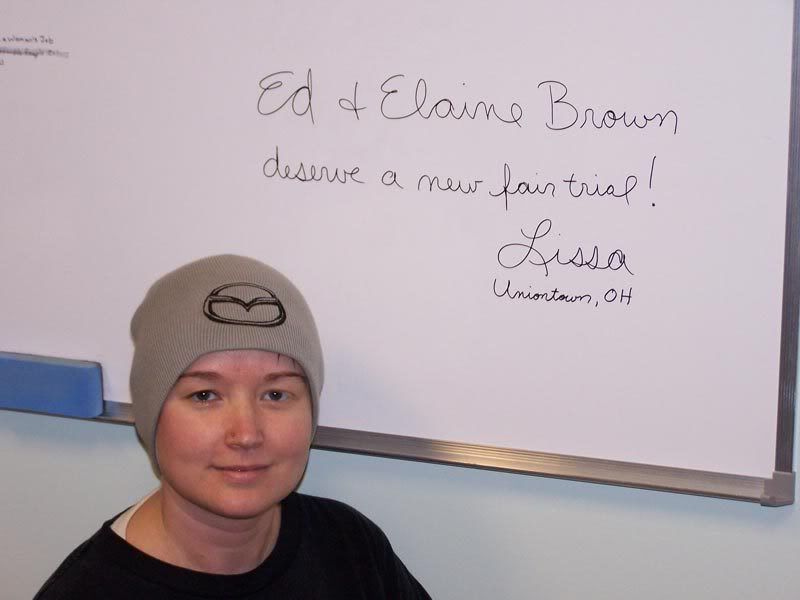 a Woman's Job
Ed & Elaine Brown
deserve a new fair trial!
Lissa
Uniontown, OH